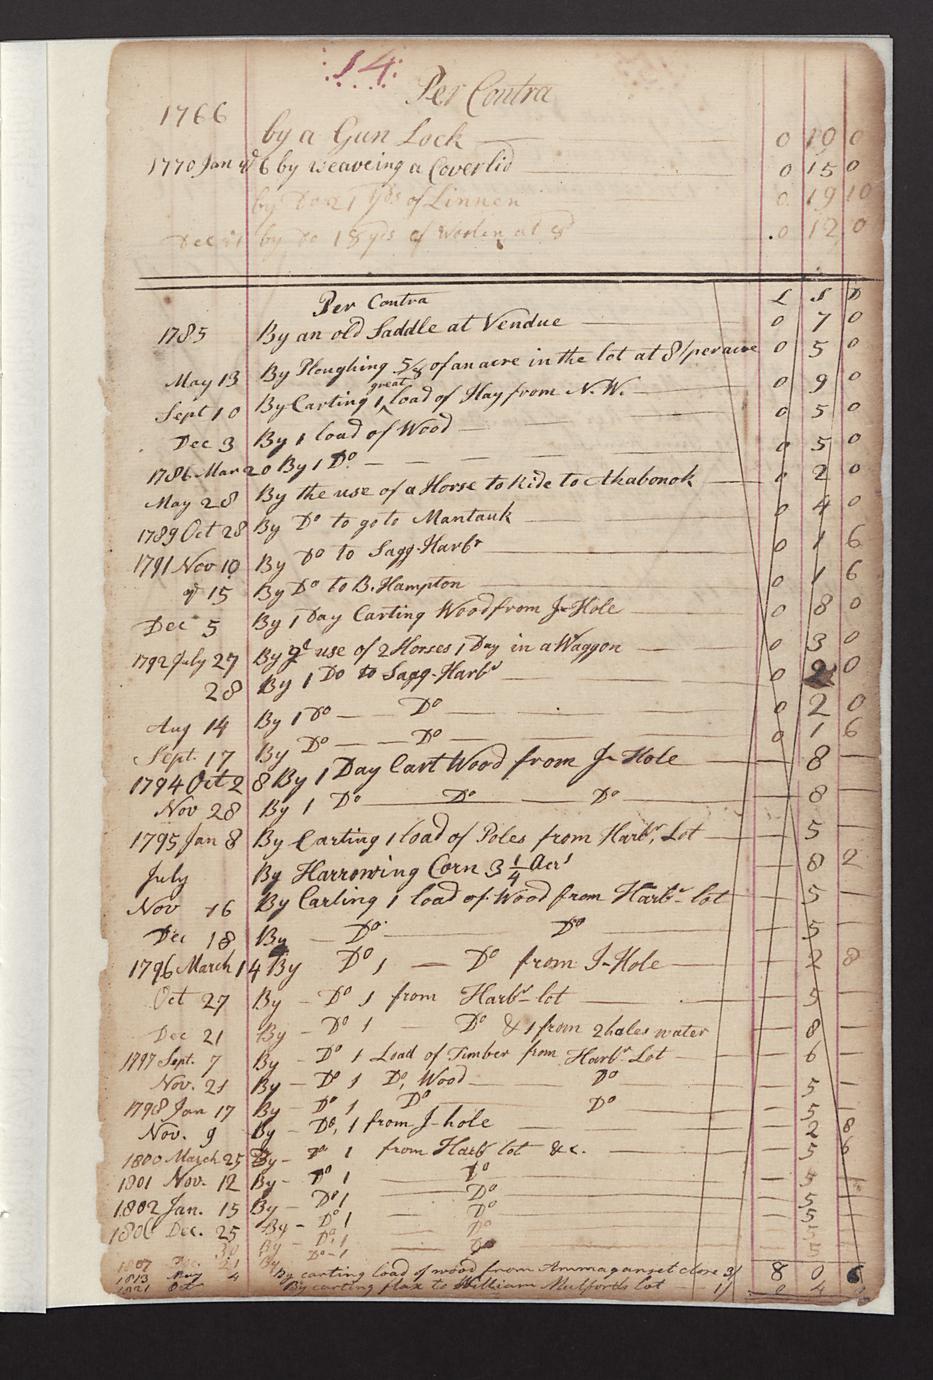 14
Per Contra
1766
by a Gun Lock 0 10 0
1770 Jan ye 6 by weaveing a Coverlid 0 15 0
by Do 21 yds of Linnen 0 19 10
Dec by Do 18 yds of Woolen at 8d 0 12 0
Per Contra £ S D
1785 By an old Saddle at Vendue 0 7 0
May 13 By Ploughing 5/8 of an acre in the lot at 8/ per acre 0 5 0
Sept 10 By Carting 1 great load of Hay from N.W. 0 9 0
Dec 3 By 1 load of Wood 0 5 0
1786 Mar 20 By 1 Do 0 5 0
May 28 By the use of a Horse to Ride to Akabonok 0 2 0
1789 Oct 28 By Do to go to Mantauk 0 4 0
1791 Nov 10 By Do to Sagg-Harbr 0 1 6
ye 15 By Do to B. Hampton 0 1 6
Dec 5 By 1 Day Carting Wood from J-Hole 0 8 0
1792 July 27 By ye use of 2 Horses 1 Day in a Waggon 0 3 0
28 By 1 Do to Sagg-Harbr 0 2 0
Aug 14 By 1 Do Do 0 2 0
Sept. 17 By Do Do 0 1 6
1794 Oct 28 By 1 Day Cart Wood from J-Hole 8
Nov 28 By 1 Do Do Do 8
1795 Jan 8 By Carting 1 load of Poles from Harbr Lot 5
July By Harrowing Corn 3 1/4 Acrs 8 2
Nov 16 By Carting 1 load of Wood from Harbr-lot 5
Dec 18 By Do Do 5
1796 March 14 By Do 1 Do from J-Hole 2 8
Oct 27 By Do 1 from Harbr-lot 5
Dec 21 By Do 1 Do & 1 from 2 holes water 8
1797 Sept. 7 By Do 1 Load of Timber from Harbr Lot 6
Nov. 21 By Do 1 Do Wood Do 5
1798 Jan 17 By Do 1 Do Do 5
Nov. 9 By Do, 1 from J-hole 2 8
1800 March 25 By Do 1 from Harbr lot &c. 5 6
1801 Nov. 12 By Do 1 Do 5
1802 Jan. 15 By Do 1 Do 5
1806 Dec. 25 By Do 1 Do 5
30 By Do 1 Do 5
1807 Dec 21 By Do 1 Do 5
1813 May 4 By carting load of wood from Ammaganset close 3/ 8 0 6
1821 Oct By carting flax to William Mulfords lot 1/ 0 4